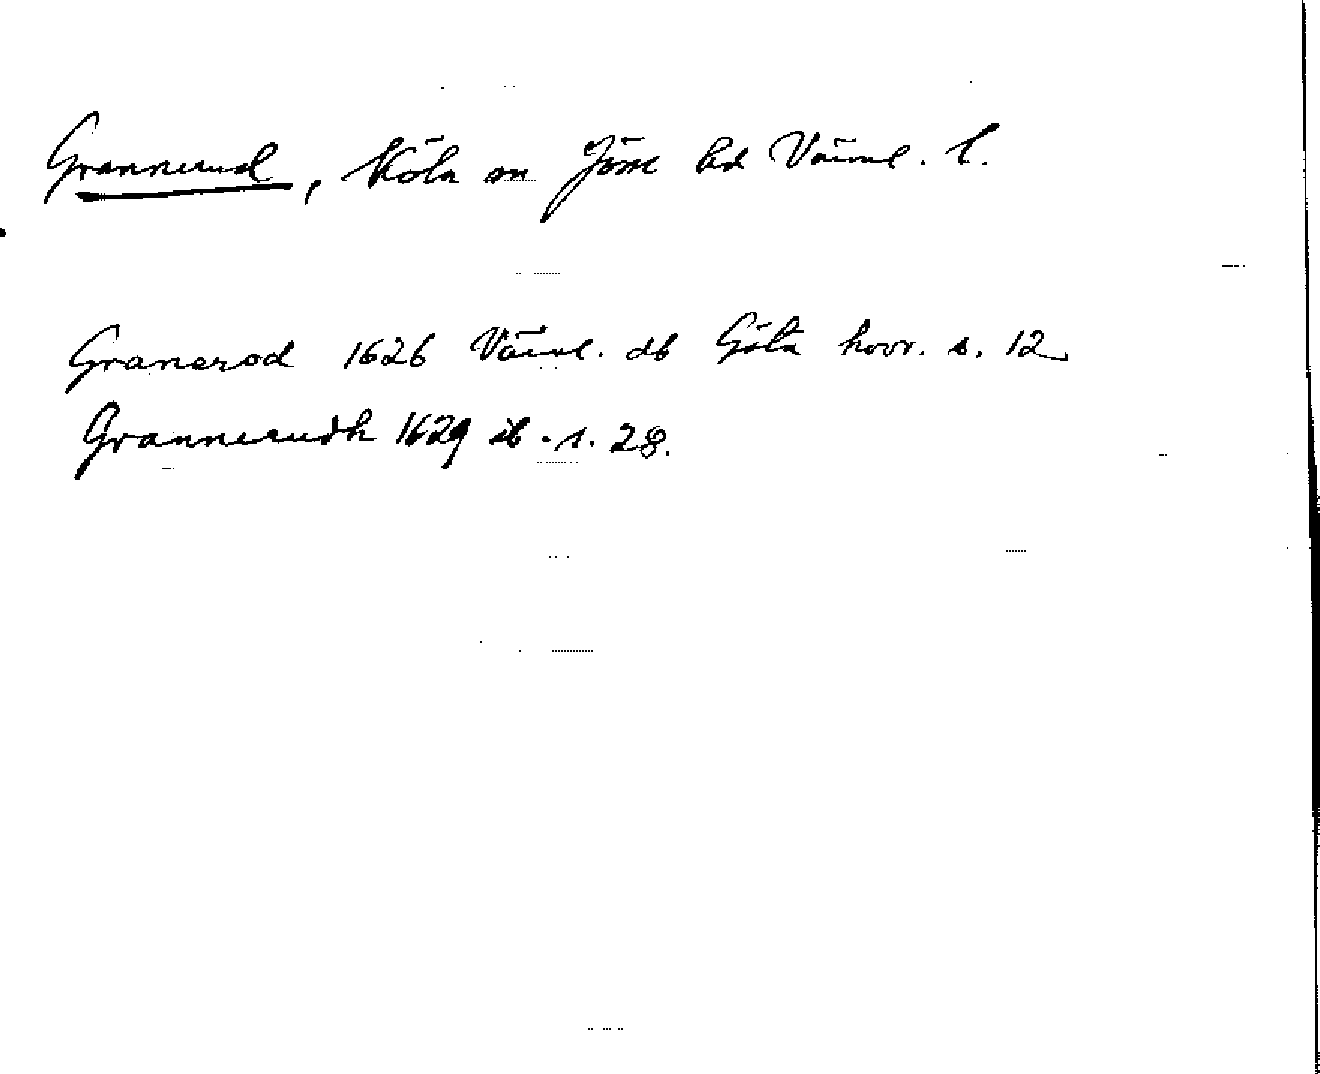 Grannerud, Köla sn Jösse hd Värml. l.
Granerod 1626 Värml. db Göta hovr. s. 12
Grannerudh 1629 ib. s. 28.